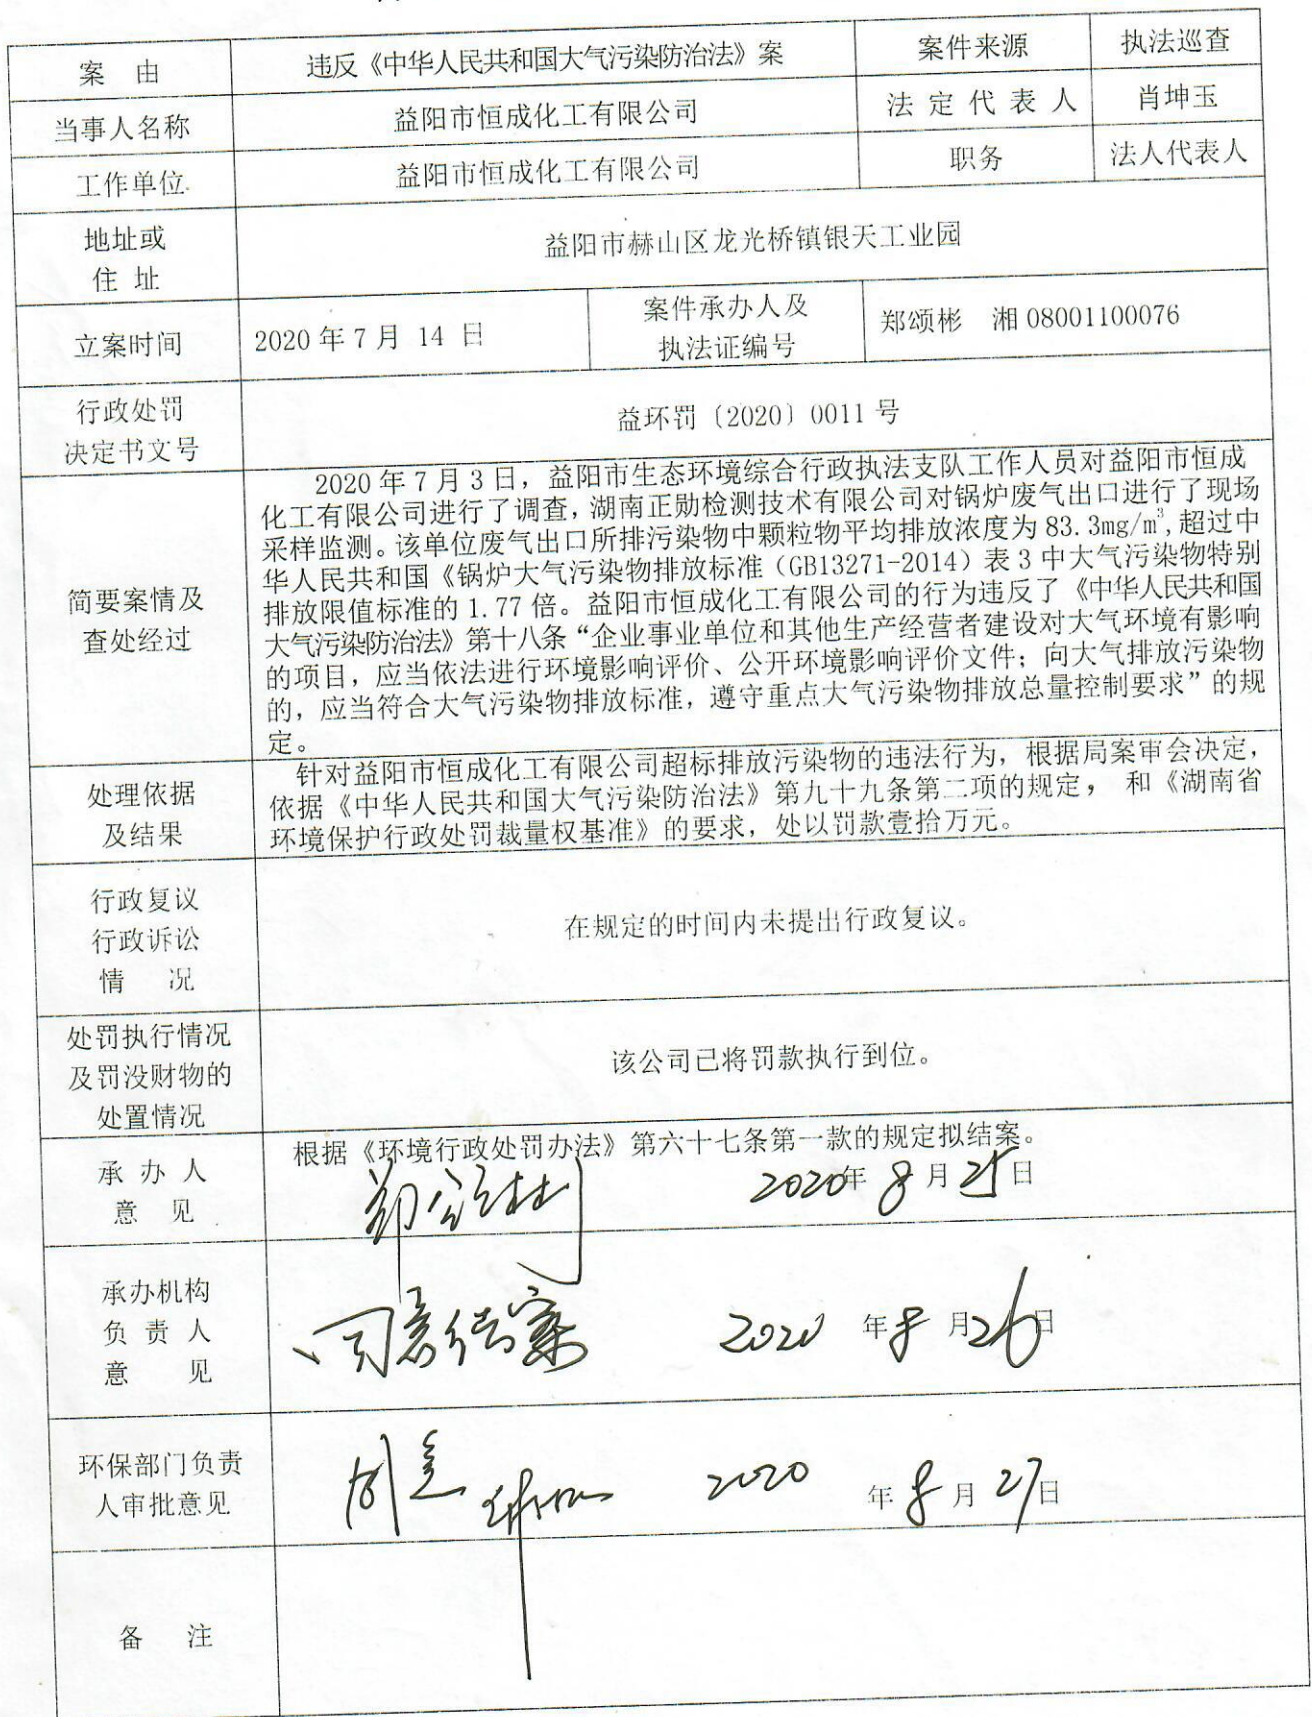 案 由 违反《中华人民共和国大气污染防治法》案 案件来源 执法巡查
当事人名称 益阳市恒成化工有限公司 法定代表人 肖坤玉
工作单位 益阳市恒成化工有限公司 职务 法人代表人
地址或
住 址
益阳市赫山区龙光桥镇银天工业园
立案时间 2020年7月 14 日
案件承办人及
执法证编号
郑颂彬 湘08001100076
行政处罚
决定书文号
益环罚〔2020〕0011号
简要案情及
查处经过
2020年7月3日，益阳市生态环境综合行政执法支队工作人员对益阳市恒成
化工有限公司进行了调查，湖南正勋检测技术有限公司对锅炉废气出口进行了现场
采样监测。该单位废气出口所排污染物中颗粒物平均排放浓度为83.3mg/m³,超过中
华人民共和国《锅炉大气污染物排放标准（GB13271-2014）表3中大气污染物特别
排放限值标准的1.77倍。益阳市恒成化工有限公司的行为违反了《中华人民共和国
大气污染防治法》第十八条“企业事业单位和其他生产经营者建设对大气环境有影响
的项目，应当依法进行环境影响评价、公开环境影响评价文件；向大气排放污染物
的，应当符合大气污染物排放标准，遵守重点大气污染物排放总量控制要求”的规
定。
处理依据
及结果
针对益阳市恒成化工有限公司超标排放污染物的违法行为，根据局案审会决定，
依据《中华人民共和国大气污染防治法》第九十九条第二项的规定， 和《湖南省
环境保护行政处罚裁量权基准》的要求，处以罚款壹拾万元。
行政复议
行政诉讼
情 况
在规定的时间内未提出行政复议。
处罚执行情况
及罚没财物的
处置情况
该公司已将罚款执行到位。
承 办 人
意 见
根据《环境行政处罚办法》第六十七条第一款的规定拟结案。
郑颂彬 2020年 8月25日
承办机构
负 责 人
意 见
同意结案 2020 年8月26日
环保部门负责
人审批意见
同意 2020 年8月27日
备 注